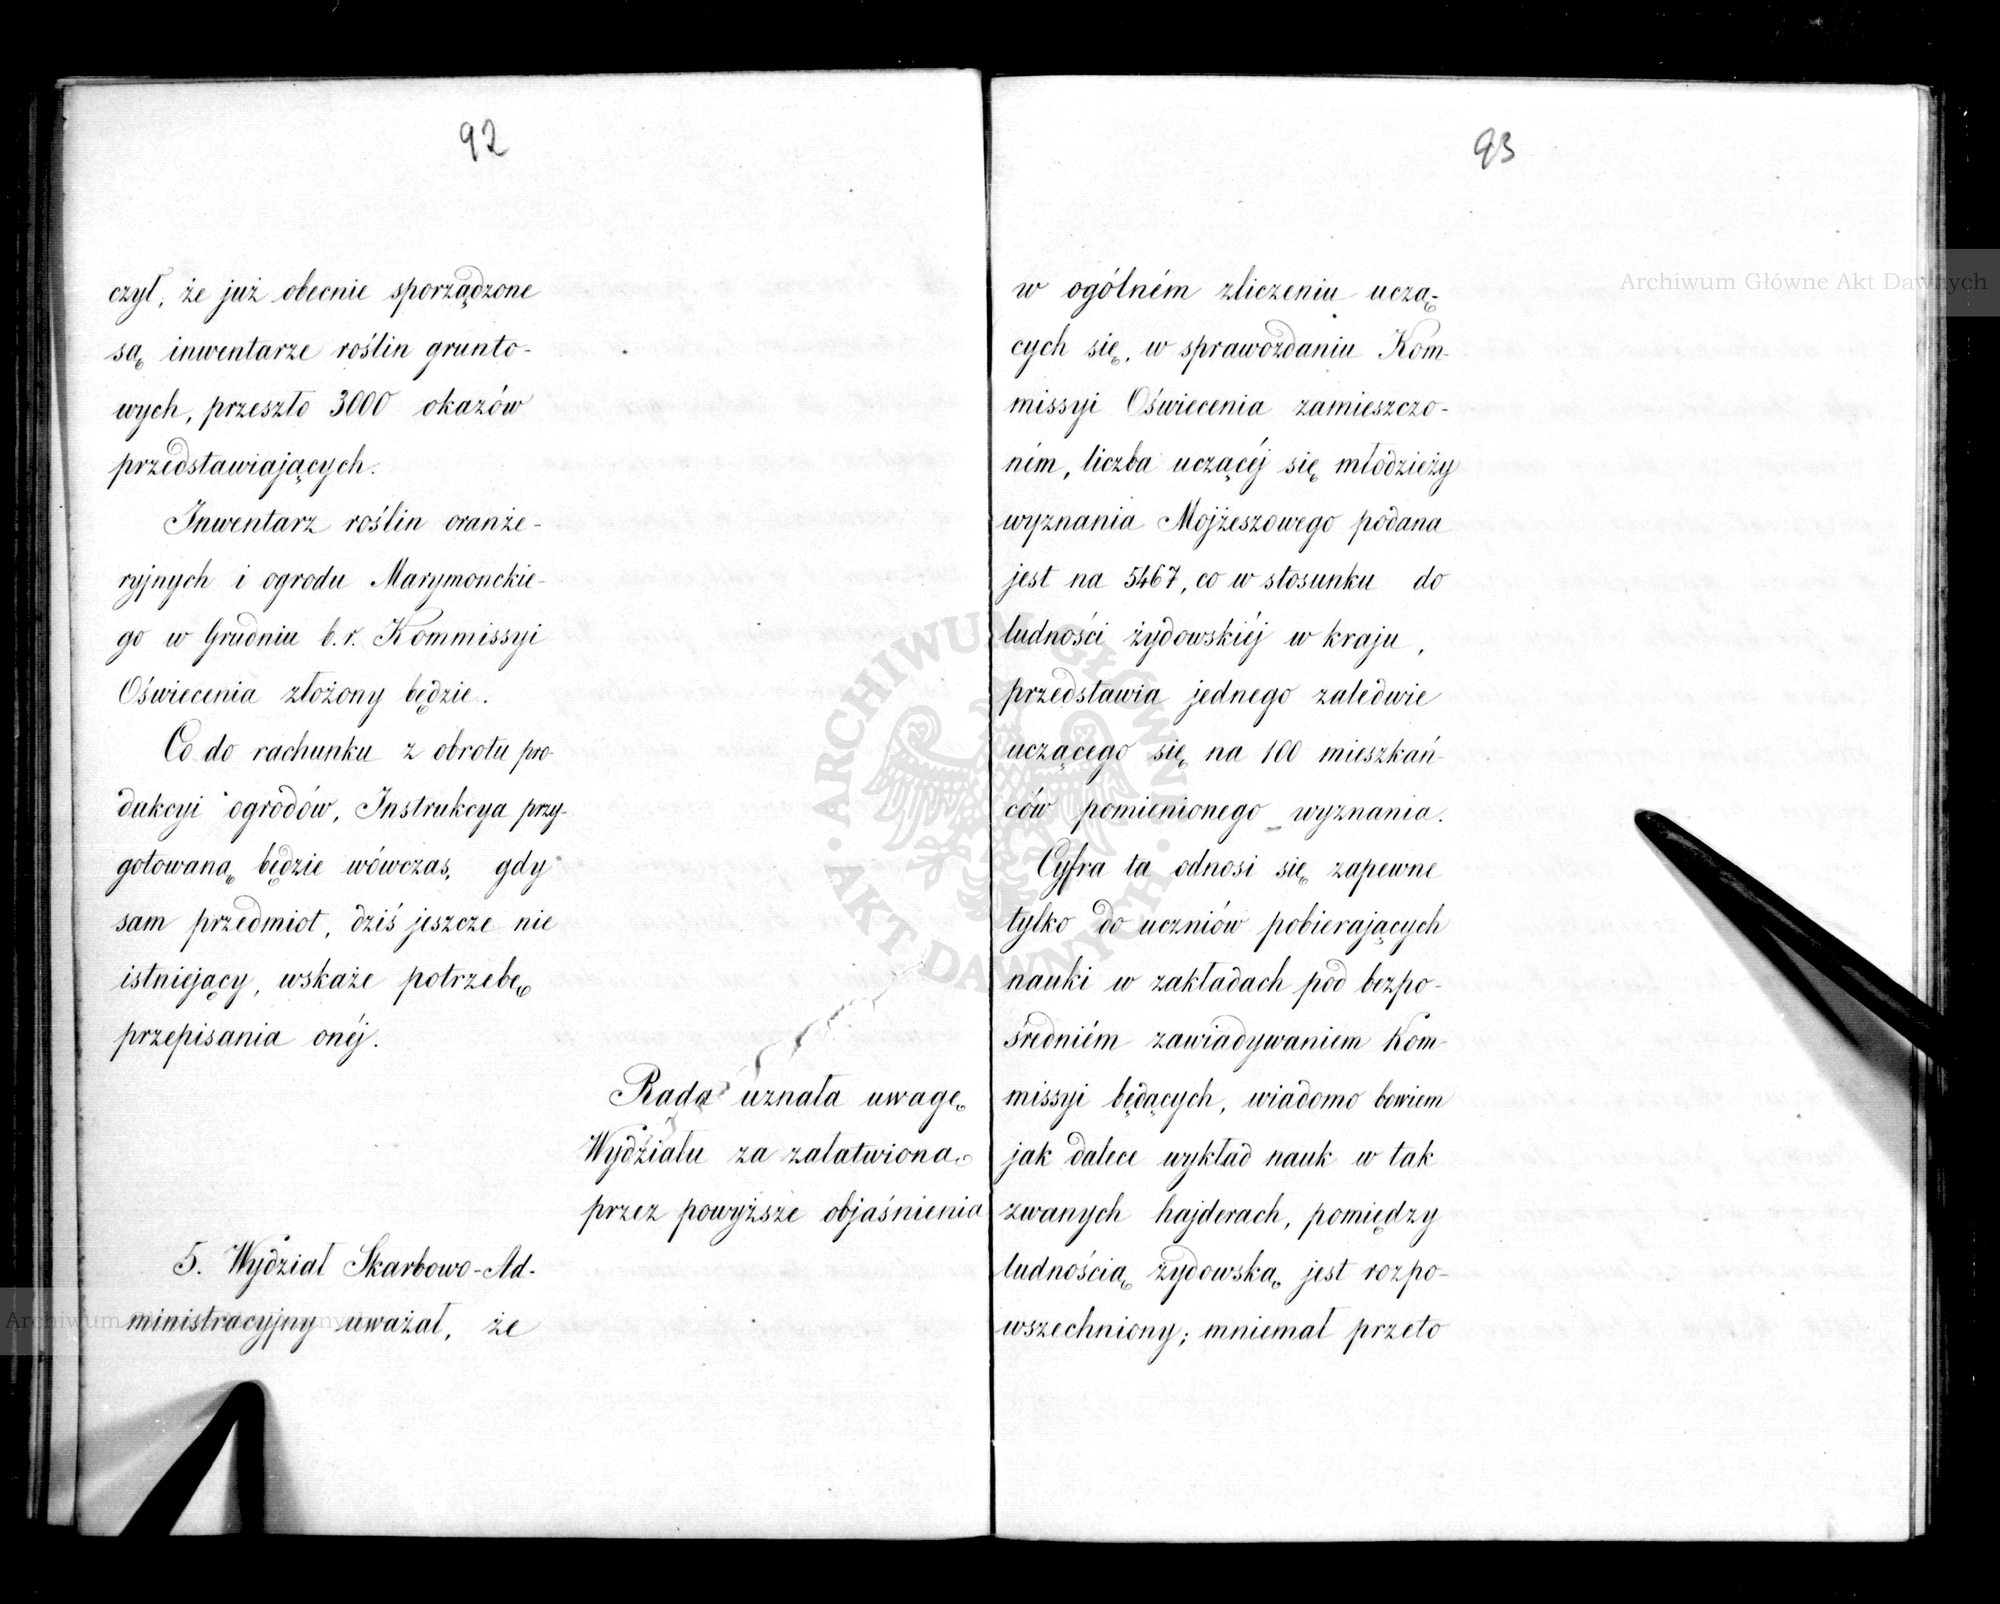 92
czył, że już obecnie sporządzone
są inwentarze roślin grunto-
wych, przeszło 3000 okazów
przedstawiających.
Inwentarz roślin oranże-
ryjnych i ogrodu Marymonckie-
go w Grudniu b.r. Kommissyi
Oświecenia złożony będzie.
Co do rachunku z obrotu pro-
dukcyi ogrodów, Instrukcya przy-
gotowaną będzie wówczas, gdy
sam przedmiot, dziś jeszcze nie
istniejący, wskaże potrzebę
przepisania onéj.
Rada uznała uwagę
Wydziału za załatwioną
przez powyższe objaśnienia
5. Wydział Skarbowo-Ad-
ministracyjny uważał, że
93
w ogólném zliczeniu uczą-
cych się, w sprawozdaniu Kom-
missyi Oświecenia zamieszczo-
ném, liczba uczącéj się młodzieży
wyznania Mojżeszowego podana
jest na 5467, co w stosunku do
ludności żydowskiéj w kraju,
przedstawia jednego zaledwie
uczącego się na 100 mieszkań-
ców pomienionego wyznania.
Cyfra ta odnosi się zapewne
tylko do uczniów pobierających
nauki w zakładach pod bezpo-
średniém zawiadywaniem Kom-
missyi będących, wiadomo bowiem
jak dalece wykład nauk w tak
zwanych hajderach, pomiędzy
ludnością żydowską jest rozpo-
wszechniony; mniemał przeto
Archiwum Główne Akt Dawnych
ARCHIWUM GŁÓWNE
AKT DAWNYCH